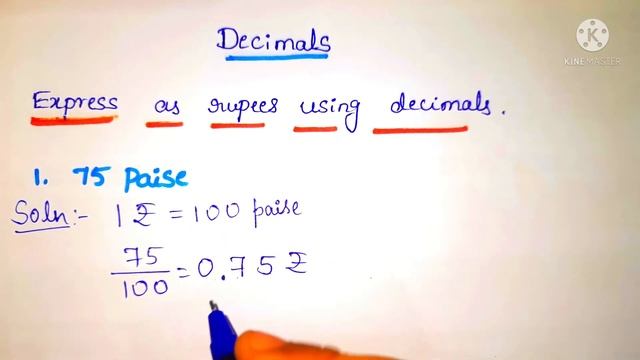 Decimals
K
KINEMASTER
Express as rupees using decimals.
1. 75 Paise
Soln:- 1 ₹ = 100 paise
75
100
= 0.75 ₹